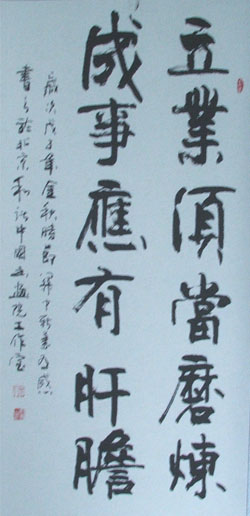 立業須當磨煉
成事應有肝膽
歲次戊子年金秋時節有感
書於北京中國書畫院工作室